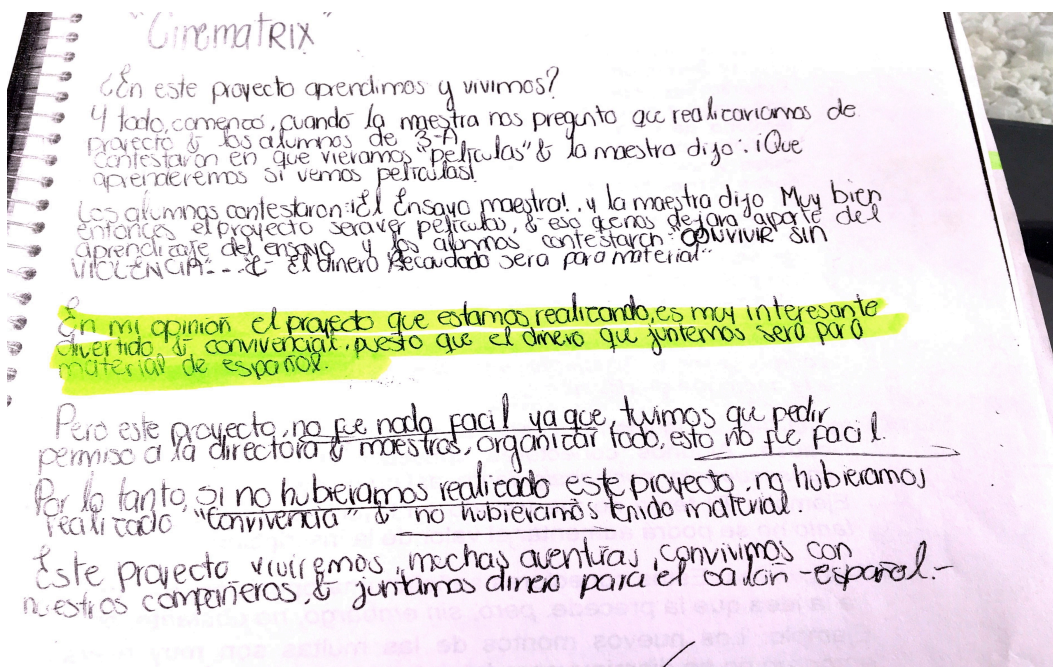 "CinematRIX"
¿En este proyecto aprendimos y vivimos?
Y todo, comenzó, cuando la maestra nos pregunto que realizariamos de
proyecto & los alumnos de 3-A
contestarón en que vieramos "películas" & la maestra dijo: ¡Que
aprenderemos si vemos películas!
Los alumnos contestaron: ¡El Ensayo maestra!, y la maestra dijo Muy bien
entonces el proyecto sera ver peliculas, & eso que nos dejara aparte del
aprendizaje del ensayo y los alumnos contestaron "CONVIVIR SIN
VIOLENCIA"... & El dinero Recaudado sera para material"
En mi opinión el proyecto que estamos realizando, es muy interesante
divertido & convivencial, puesto que el dinero que juntemos será para
material de español.
Pero este proyecto, no fue nada facil ya que, tuvimos que pedir
permiso a la directora & maestros, organizar todo, esto no fue facil.
Por lo tanto, si no hubieramos realizado este proyecto, no hubieramos
realizado "convivencia" & no hubieramos tenido material.
Este proyecto viviremos, muchas aventuras, convivimos con
nuestros compañeros, & juntamos dinero para el salón -español.-